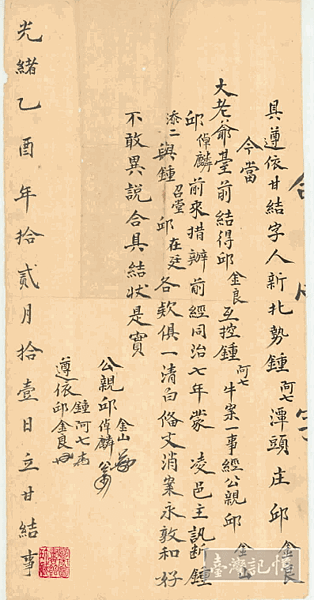 具遵依甘結字人新北勢鍾阿七潭頭庄邱金良
今當
大老爺臺前結得邱金良互控鍾阿七牛案一事經公親邱金山
邱倬麟前來措辦前經同治七年蒙凌邑主訊斷鍾
添二與鍾召堂邱在廷各欵俱一清白俻文消案永敦和好
不敢異說合具結狀是實
公親邱金山倬麟
遵依鍾阿七邱金良
光緒乙酉年拾貳月拾壹日立甘結事
臺灣記憶